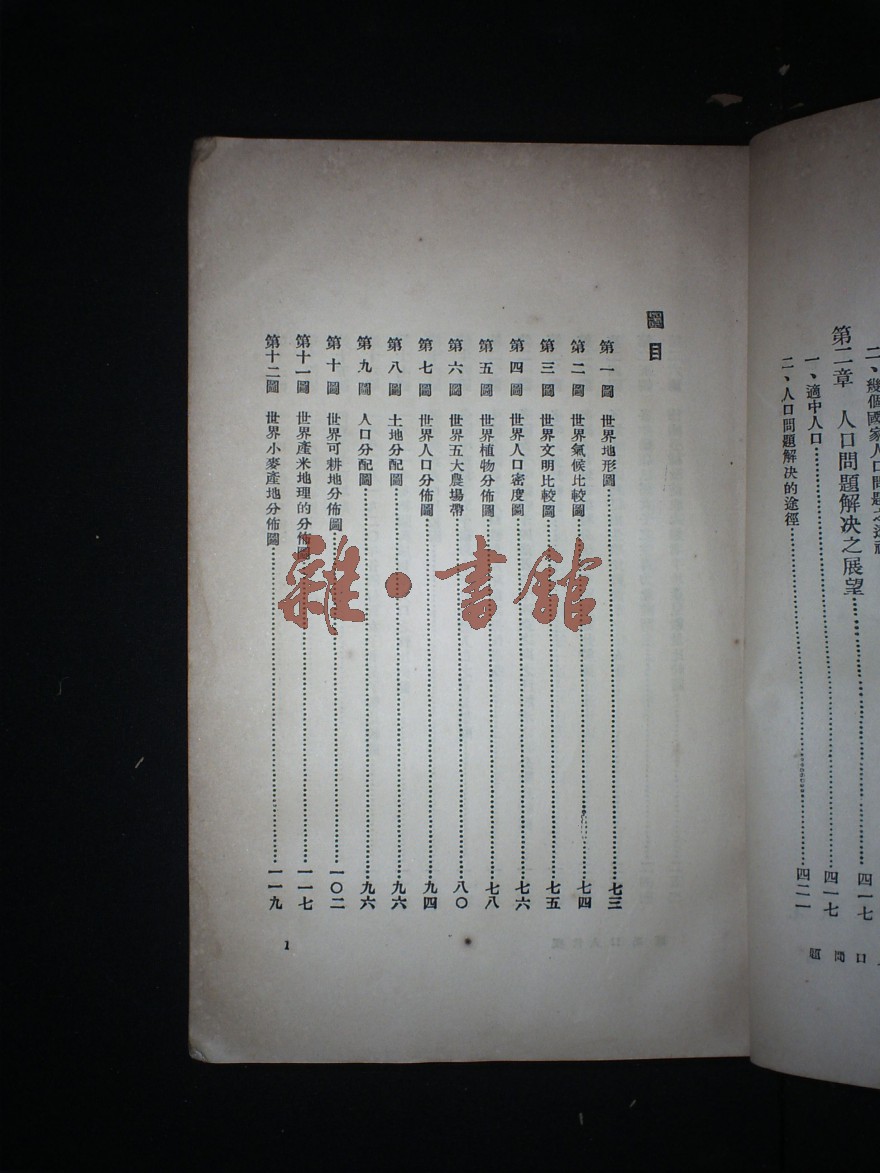 二、幾個國家人口問題之
第二章　人口問題解決之展望……四一七
一、適中人口……四一七
二、人口問題解決的途徑……四二一
口問題
圖目
第一圖　世界地形圖……七三
第二圖　世界氣候比較圖……七四
第三圖　世界文明比較圖……七五
第四圖　世界人口密度圖……七六
第五圖　世界植物分佈圖……七八
第六圖　世界五大農場帶……八〇
第七圖　世界人口分佈圖……九四
第八圖　土地分配圖……九六
第九圖　人口分配圖……九六
第十圖　世界可耕地分佈圖……一〇二
第十一圖　世界產米地理的分佈圖……一一七
第十二圖　世界小麥產地分佈圖……一一九
1
雜·書館